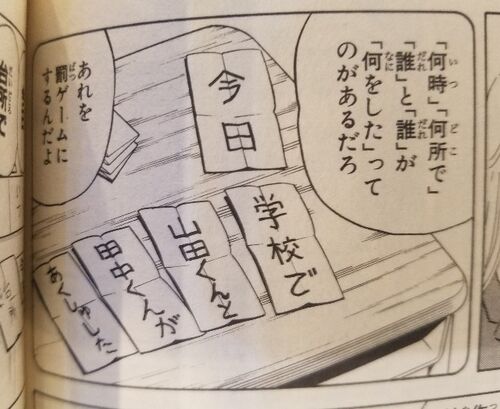 「何時」「何所で」
「誰」と「誰」が
「何をした」って
のがあるだろ
あれを
罰ゲームに
するんだよ
今日
学校で
山田くんと
田中くんが
あくしゅした